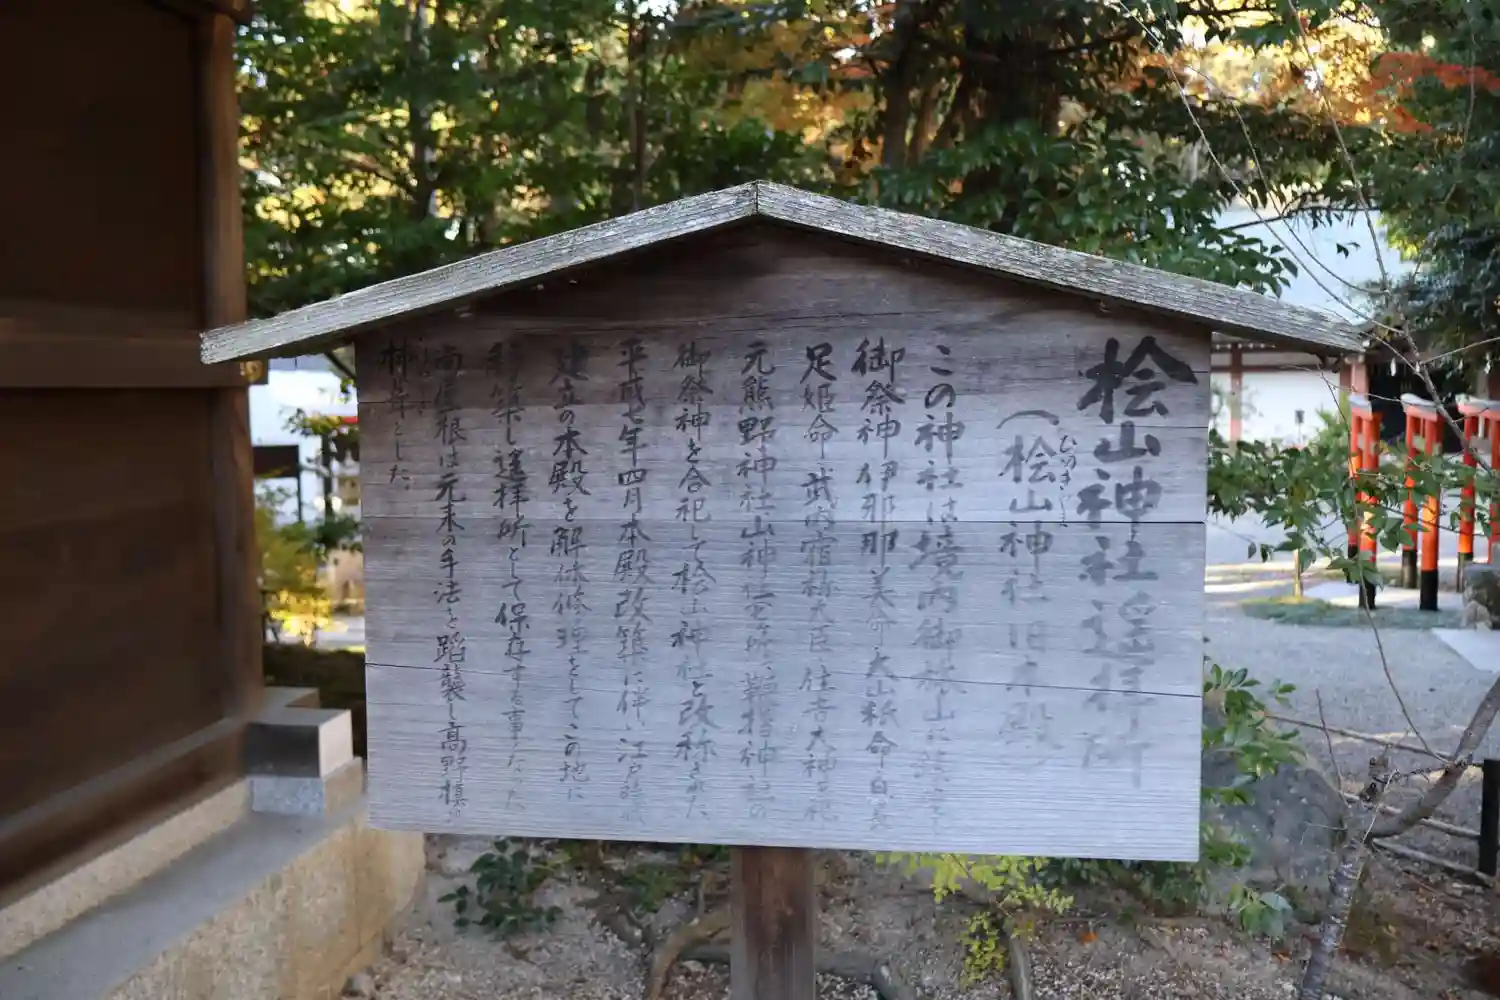 桧山神社遥拝所
ひのきやま
（桧山神社旧本殿）
この神社は境内御林山に鎮座し
御祭神伊那那美命・大山秖命・息長
足姫命・武内宿祢大臣・住吉大神を祀
元熊野神社山神社 鞴指神社の
御祭神を合祀して桧山神社と改称された
平成七年四月本殿改築に伴い、江戸時代
建立の本殿を解体修理をしてこの地に
移築し遥拝所として保存する事となった
尚屋根は元来の手法を踏襲し高野槙の
柿葺とした。